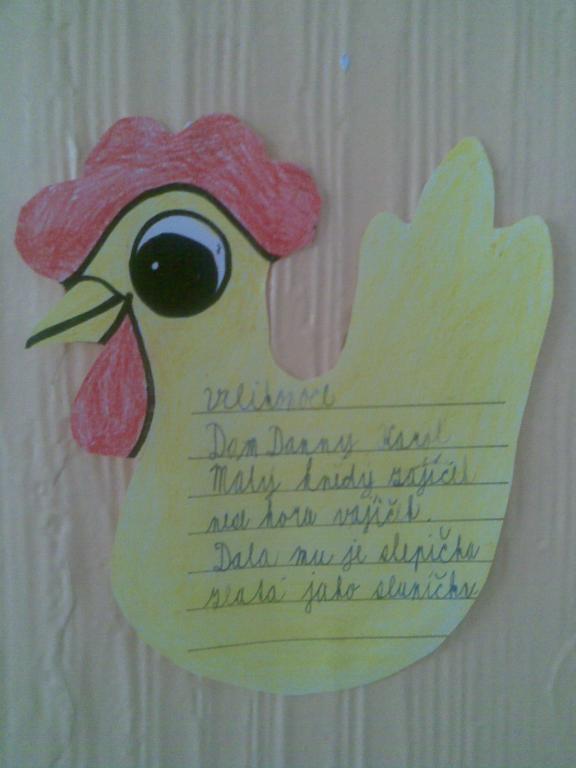 velikonoce
Dom Danny Karel
Malý hnědý zajíček
nese hora vajíček.
Dala mu je slepička
zlatá jako sluníčko